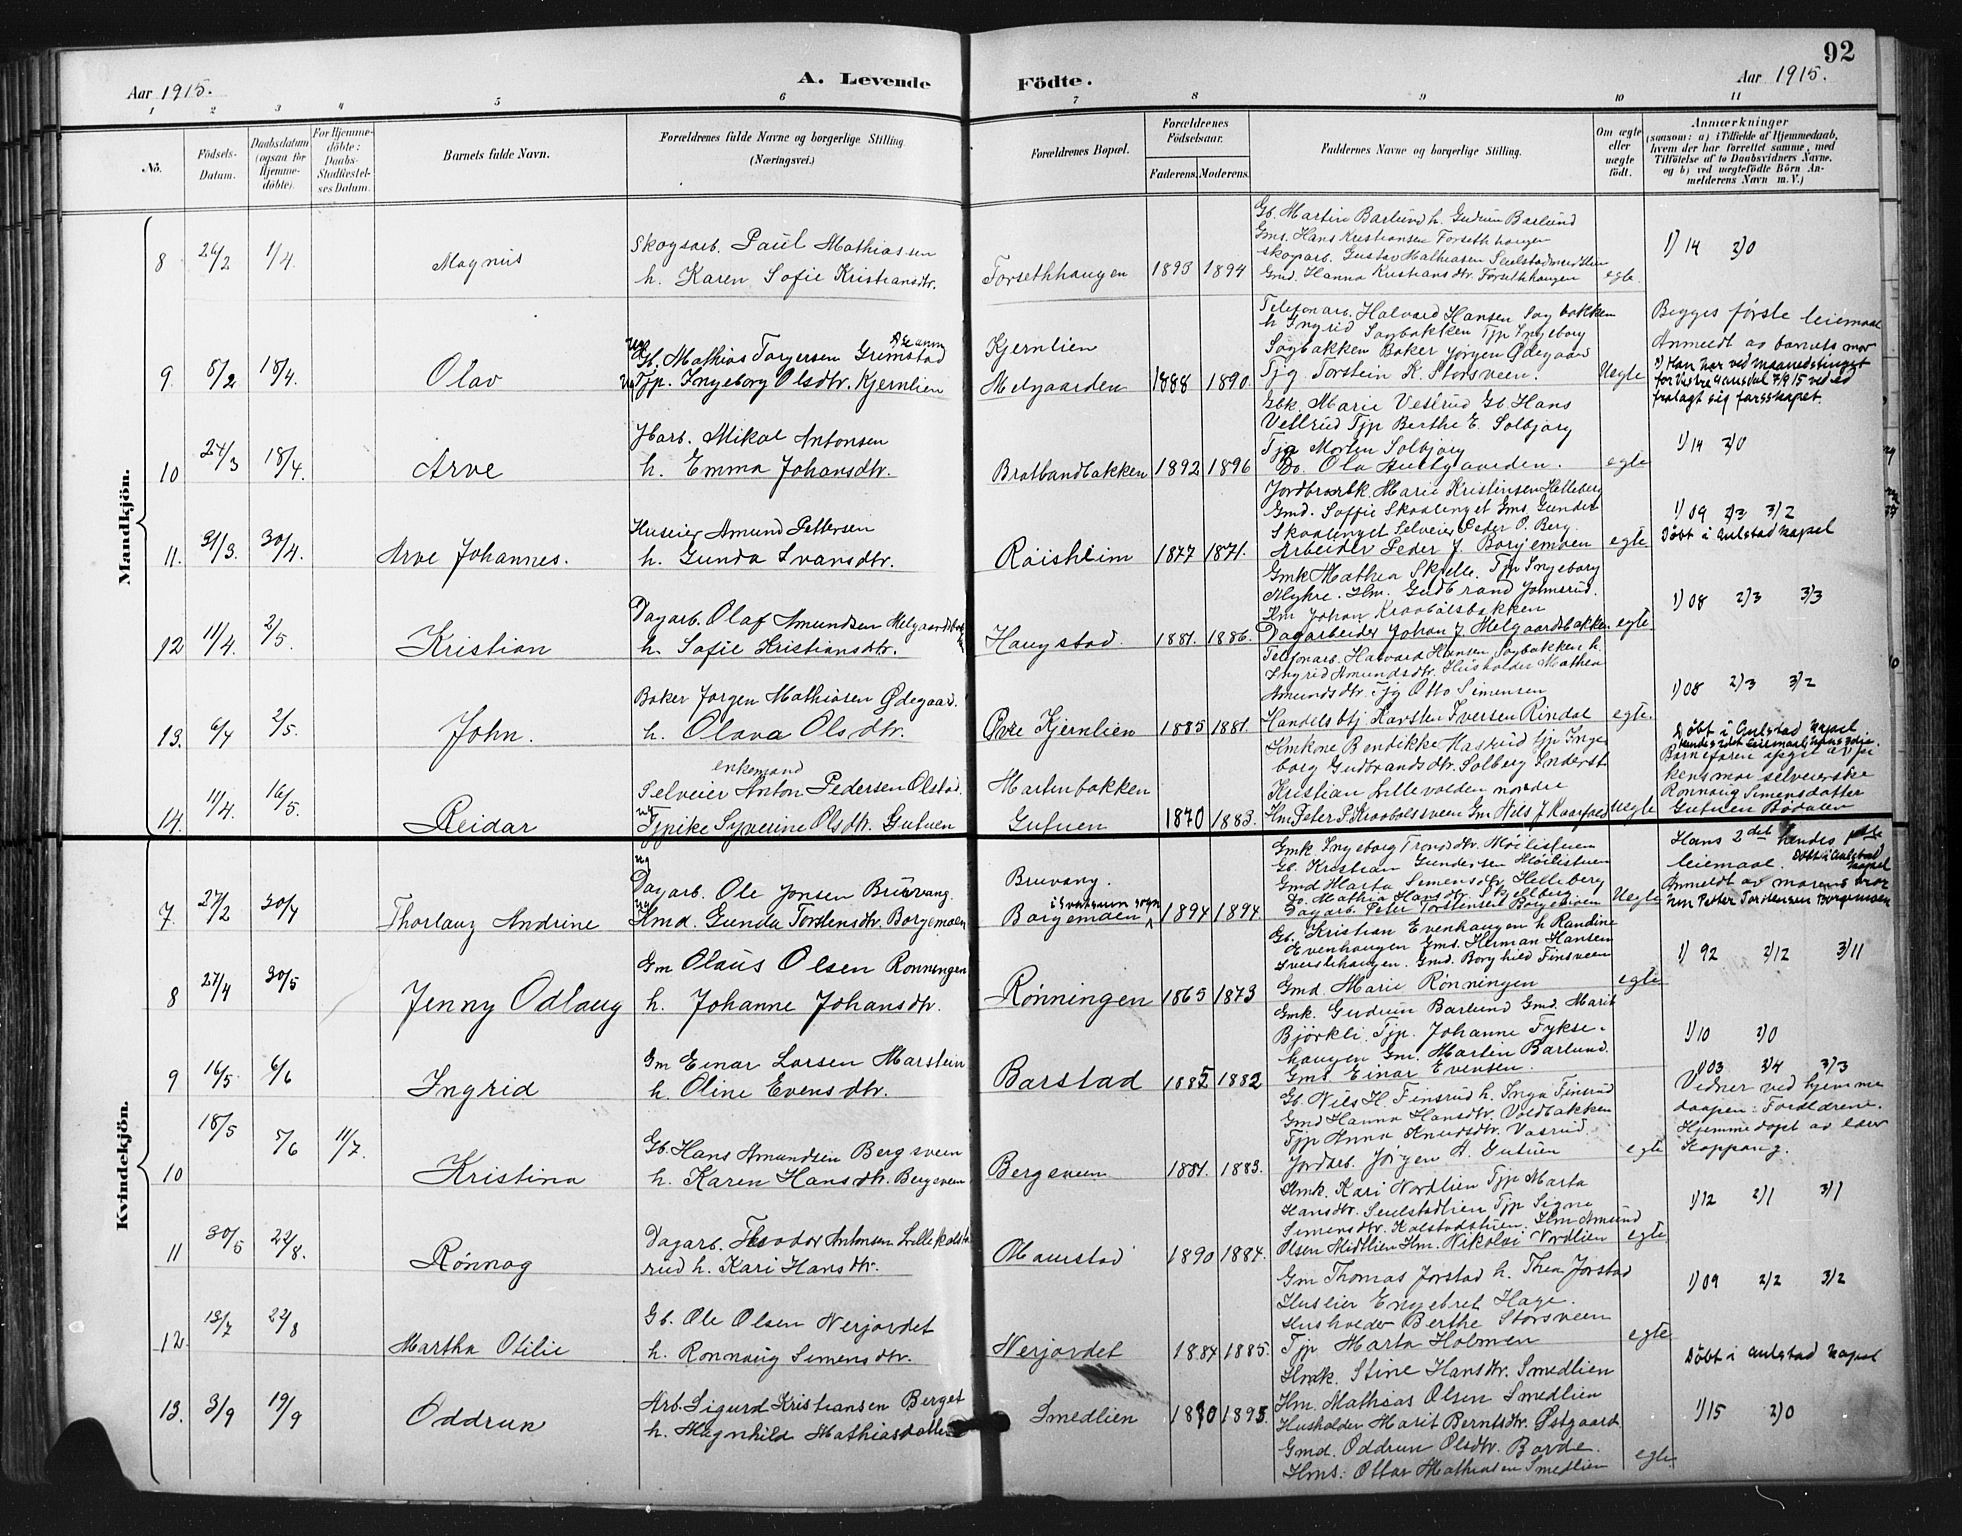 92
Aar 1915.
A. Levende
Födte.
Aar 1915.
1 2 3 4 5 6 7 8 9 10 11
No.
Födsels-Datum.
Daabsdatum (ogsaa for Hjemme-döbte).
For Hjemme-döbte: Daabs-Stadfæstel-ses Datum.
Barnets fulde Navn.
Forældrenes fulde Navne og borgerlige Stilling
(Næringsvei.)
Forældrenes Bopæl.
Forældrenes Födselsaar.
Faderens. Moderens.
Faddernes Navne og borgerlige Stilling.
Om ægte eller uægte födt.
Anmærkninger
(saasom: a) i Tilfælde af Hjemmedaab,
hvem der har forrettet samme, med
Tilföielse af to Daabsvidners Navne.
og b) ved uægtefödte Börn An-
melderens Navn m. V.)
Mandkjön.
8 26/2 1/4. Magnus
Skogsarb. Paul Mathiassen
h. Karen Sofie Kristiansdtr.
Forsethhaugen 1893 1894
Gb. Martin Barlund h. Gudrun Barlund
Gms. Hans Kristiansen Forsethhaugen
Skogarb. Gustav Mathiasen
Gmd. Hanna Kristiansdtr. Forsethhaugen
egte.
1) 14 2) 0
9. 8/2 18/4. Olav
Ug Gb. Mathias Torgersen Grimstad
Ug Tjp. Ingeborg Olsdtr. Kjernlien
Kjernlien
Melgaarden 1888 1890
Telefonarb. Halvard Hansen Sagbakken
h Ingrid Sagbakken Tjp Ingeborg
Sagbakken Baker Jørgen Ødegaard
Tjg. Torstein K. Storsveen.
Uegte
Begges første leiemaal
Anmeldt av barnets mor
2) Han har ved maanedstinget
for Vestre Gausdal 7/9 15 ved ed
fralagt sig farsskapet.
10 24/3 18/4. Arve
Jfarb. Mikal Antonsen
h. Emma Johansdtr.
Bratlandbakken 1892 1896
Gbk. Marie Vestrud Gb Hans
Vestrud Tjp Berthe E. Solbjørg
Tjg Morten Solbjørg
Do. Ola
egte
1) 14 2) 0
11. 31/3. 30/4. Arve Johannes.
Huseier Amund Pettersen
h. Gunda Ivarsdtr.
Røishleim 1877 1871.
Jordbrukerk. Marie Kristinsen Helleberg
Gmd. Soffie Skaalenget Gms Gunder
Skaalenget Selveier Peder P. Berg.
Arbeider Peder J. Borjemoen
egte
1) 09 2) 3 3) 2
Døbt i Aulstad kapel
12 11/4. 2/5. Kristian
Dagarb. Olaf Amundsen
h. Sofie Kristiansdtr.
Haugstad. 1881. 1886.
Gmk Mathea Skjelle. Tjp Ingeborg
Myhre. Hm. Gudbrand Johnsrud.
Hm Johan Kraabølsbakken
Dagarbeider Johan J. Melgaardsbakken
egte
1) 08 2) 3 3) 3
13. 6/4 2/5. John.
Baker Jørgen Mathiasen Ødegaard.
h. Olava Olsdtr.
Øvre Kjernlien 1885 1881.
Telefonarb. Halvard Hansen Sagbakken h.
Ingrid Amundsdtr. Husholder Mathea
Amundsdtr. Tjg Otto Simensen
Handelsbtj. Karsten Iversen Rindal
egte.
1) 08 2) 3 3) 2
Døbt i Aulstad Kapel
14. 11/4. 16/5. Reidar
enkemand
Selveier Anton Pedersen Olstad.
ug Tjpike Syverine Olsdtr. Gutuen
Martinbakken
Gutuen 1870 1883.
Hmkone Bendikke Kastrud Tjp Inge
borg Gudbrandsdtr. Solberg Inderst
Kristian Lillevolden nordre
Hm Peter P. Kraabølssveen Gm Nils J. Kaarstad
Uegte
Barnefaren opgit av pi
kens mor selveierske
Rønnaug Simensdatter
Gutuen Bødalen
Kvindekjön.
7. 27/2 30/4 Thorlaug Andrine
Ug Dagarb. Ole Jonsen Bruvang.
Ug Hmd. Gunda Torstensdtr. Borgemoen
Bruvang.
Borgemoen 1894 1894
Gmk. Ingeborg Trondsdtr. Møilistuen
Gb. Kristian Gundersen Møilistuen
Gmd Marta Simensdtr. Helleberg
Do. Mathia Hansdtr. Skjelberg
Dagarb. Peter Torstensen Borgemoen
Uegte
Hans 2det hendes første
leiemaal. Døbt i Aulstad kapel
Anmeldt av morens bror
hm Petter Torstensen Borgemoen
8 27/4 30/5 Jenny Odlaug
Gm Olaus Olsen Rønningen
h. Johanne Johansdtr.
Rønningen 1865 1873
Gb. Kristian Evenhaugen h Randine
Evenhaugen Gms. Herman Hansen
Iverslihaugen. Gmd. Borghild Finsveen
Gmd. Marie Rønningen
egte
1) 92 2) 12 3) 11
9 16/5. 6/6 Ingrid
Gm Einar Larsen Marstein
h. Oline Evensdtr.
Barstad 1885 1882
Gmk. Gudrun Barlund Gmd. Marit
Bjørkli. Tjp. Johanne Fykse-
haugen Gm. Martin Barlund.
Gms Einar Evensen.
1) 10 2) 0
10 18/5 5/6 11/7. Kristina
Gb. Hans Amundsen Bergsveen
h. Karen Hansdtr. Bergsveen
Bergsveen 1881. 1883.
Gb. Nils H. Finsrud h. Inga Finsrud
Gmd Hanna Hansdtr. Voldbakken
Tjp Anna Knudsdtr. Vasrud.
Jordarb. Jørgen A. Gutuen
egte
1) 03 2) 4 3) 3
Vidner ved hjemme
daapen: Forældrene.
Hjemmedøpt av
11 30/5 22/8. Rønnog
Dagarb. Teodor Antonsen Lillekolsta
rud h. Kari Hansdtr.
Olamstad 1890 1884.
Hmk. Kari Nordlien Tjp Marta
Hansdtr. Seielstadlien Tjp Signe
Simensdtr. Kolstadstuen. Hm Amund
Olsen Midtlien Hm. Nikolai Nordlien
egte
1) 12 2) 1 3) 1
12 13/7 22/8 Martha Otilie
Gb. Ole Olsen Nerjordet
h. Rønnaug Simensdtr.
Nerjordet 1884 1885.
Gm Thomas Jorstad h. Thea Jorstad
Huseier Engebret Hage.
Husholder Berthe Storsveen
Tjp Marta Holmen
egte
1) 09 2) 2 3) 2
Døbt i Aulstad kapel
13. 3/9 19/9 Oddrun
Arb. Sigurd Kristiansen Berget
h. Magnhild Mathiasdatter
Smedlien 1890 1895.
Hmk. Stine Hansdtr. Smedlien
Hm. Mathias Olsen Smedlien
Husholder Marit Berntsdtr. Østgaard
Gmd. Oddrun Olsdtr. Barde.
Hms: Ottar Mathiasen Smedlien
egte
1) 15 2) 0